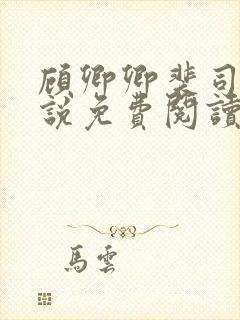 顾卿卿裴司
說免費閱讀
馬雲